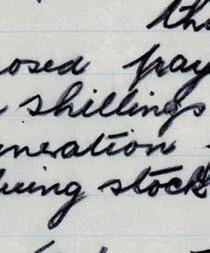 the
osed pay
shillings
neration
being stock